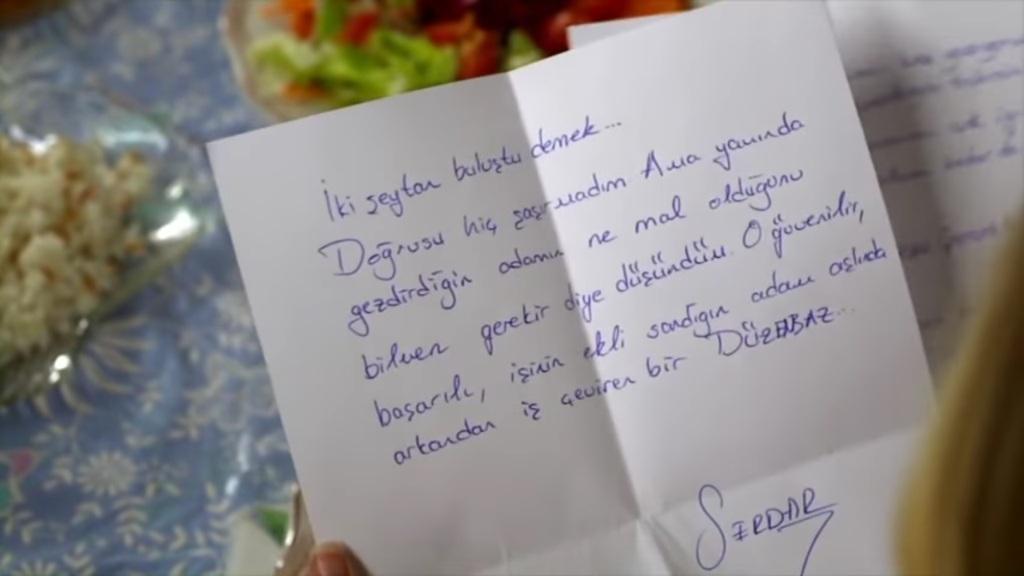 İki şeytan buluştu demek...
Doğrusu hiç şaşırmadım. Ama yanında
gezdirdiğin adamın ne mal olduğunu
bilmen gerekir diye düşündüm. O güvenilir,
başarılı, işinin ekli sandığın adam aslında
arkandan iş çeviren bir DÜZENBAZ...
SERDAR